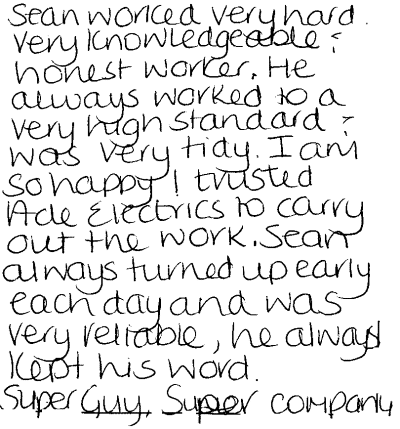 Sean worked very hard.
very knowledgeable &
honest worker. He
always worked to a
very high standard &
was very tidy. I am
so happy I trusted
Ade Electrics to carry
out the work. Sean
always turned up early
each day and was
very reliable, he always
kept his word.
Super Guy, Super company